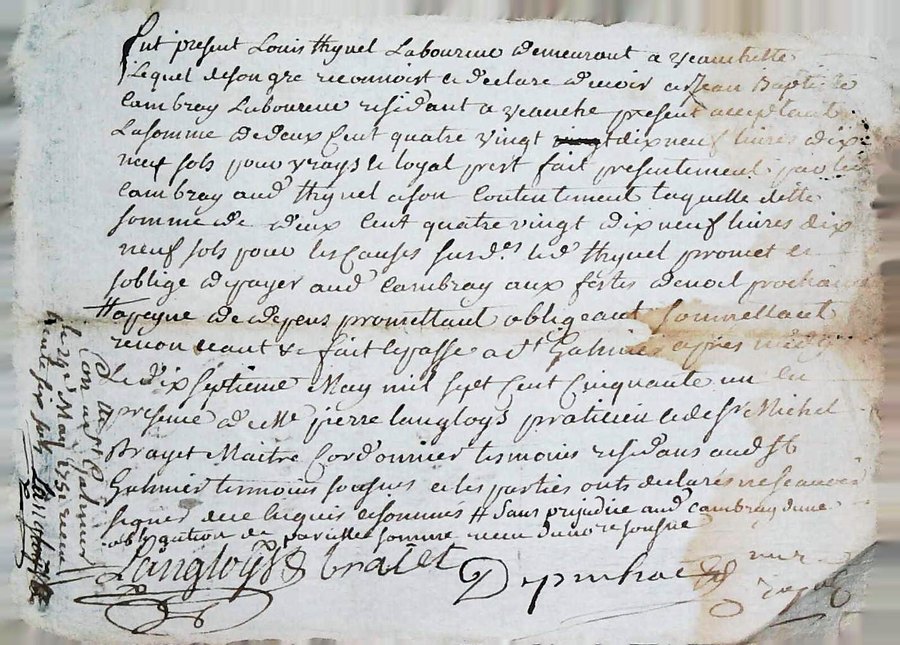 fut present Louis thynel Laboureur demeurant a
Lequel desongre reconnoist et declare devoir a Jean Baptiste
Cambray Laboureur residant a present acceptant
La somme de deux Cent quatre vingt dix neuf livres dix
neuf sols pour vrays et loyal prest fait presentement par led
Cambray aud thynel a son Contentement Laquelle ditte
somme de deux Cent quatre vingt dix neuf livres dix
neuf sols pour les Causes surd.es led thynel promet et
soblige de payer aud Cambray aux festes de noel prochaines
# a peyne de depens promettant obligeant sommettant
renonceant & fait et passe a St Galmier apres midy
Le dix septieme May mil sept Cent Cinquante un en
presence de Me pierre Langloys praticien et de sr Michel
Brayet Maitre Cordonnier tesmoins residans aud St
Galmier tesmoins sousnes et les parties onts declarés ne scavoir
signer de ce Enquis et sommes # sans prejudice aud Cambray dune
obligation de pareille somme receu du nore sousne
Langloys braiet
Conte a St Galmier
le 29e May 1751 receu
trente six sols